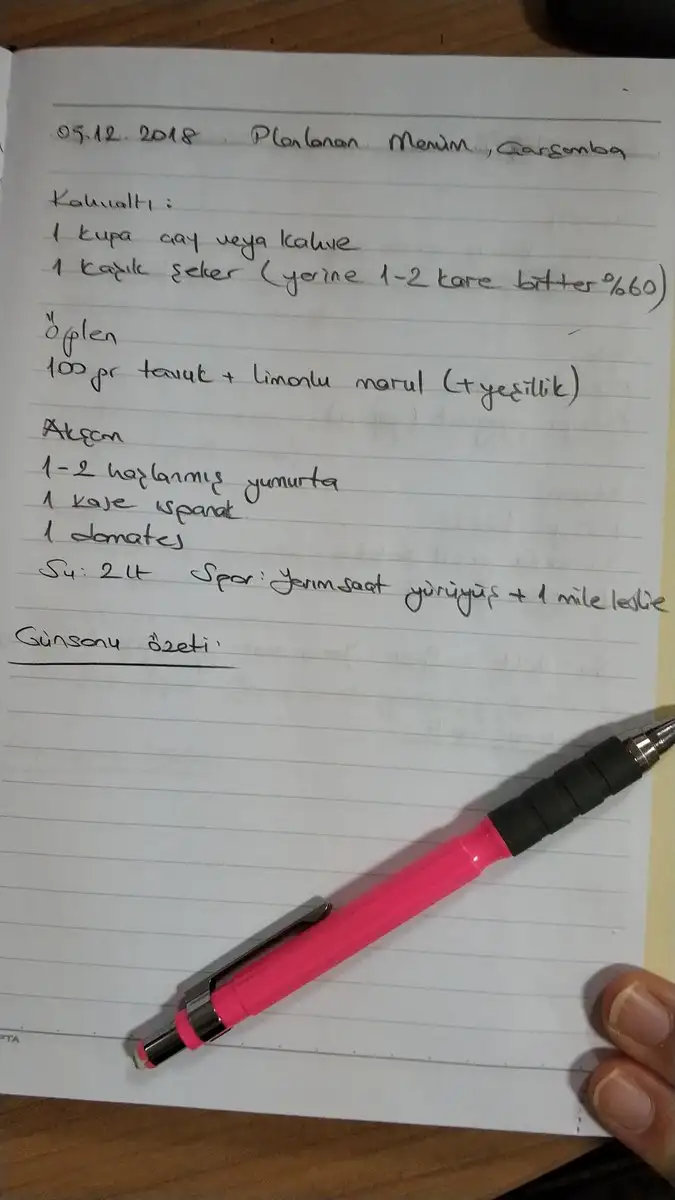 05.12.2018 Planlanan Menüm, Çarşamba
Kahvaltı:
1 kupa çay veya kahve
1 kaşık şeker (yerine 1-2 kare bitter %60)
Öğlen
100 gr tavuk + limonlu marul (+yeşillik)
Akşam
1-2 haşlanmış yumurta
1 kase ıspanak
1 domates
Su: 2 lt Spor: Yarım saat yürüyüş + 1 mile leslie
Günsonu özeti: